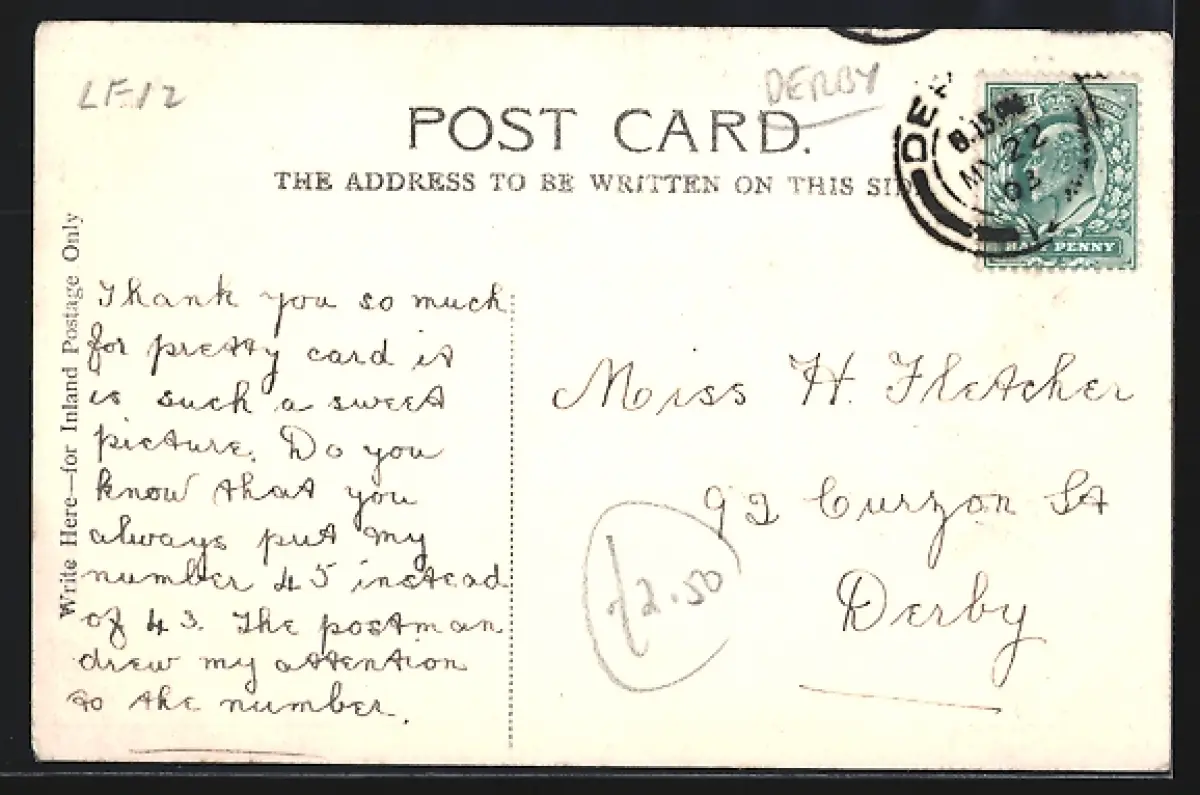 LF12
DERBY
POST CARD.
THE ADDRESS TO BE WRITTEN ON THIS SIDE
8.15 PM
MY 22
03
HALF PENNY
Write Here—for Inland Postage Only
Thank you so much
for pretty card it
is such a sweet
picture. Do you
know that you
always put my
number 45 instead
of 43. The postman
drew my attention
to the number.
Miss H. Fletcher
92 Curzon St
Derby
£2.50